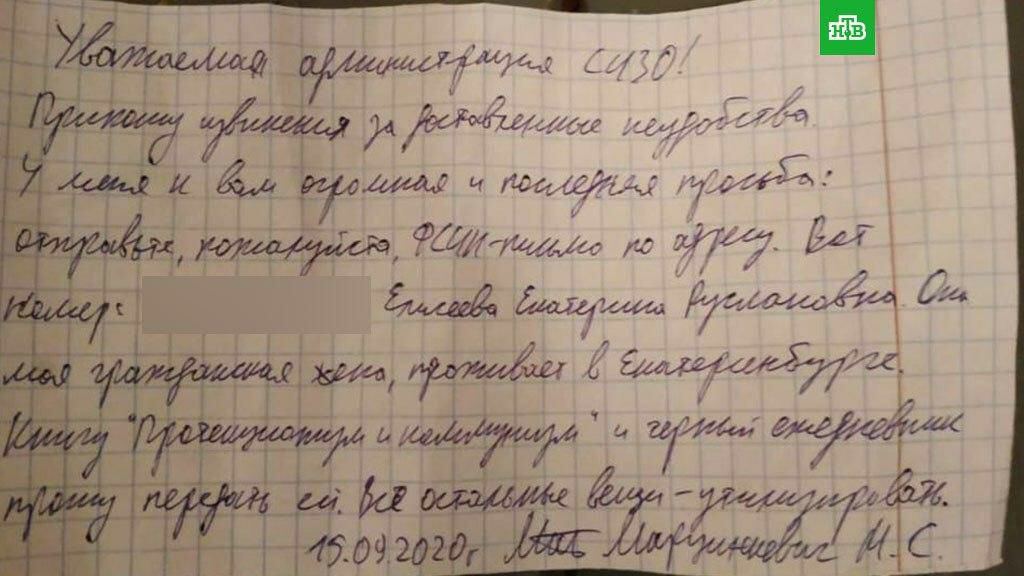 НТВ
Уважаемая администрация СИЗО!
Приношу извинения за доставленные неудобства.
У меня к вам огромная и последняя просьба:
отправьте, пожалуйста, ФСИН-письмо по адресу. Вот
номер: Елисеева Екатерина Руслановна. Она
моя гражданская жена, проживает в Екатеринбурге.
Книгу "Протекционизм и коммунизм" и черный ежедневник
прошу передать ей. Всё остальные вещи - утилизировать.
15.09.2020г Марцинкевич М. С.